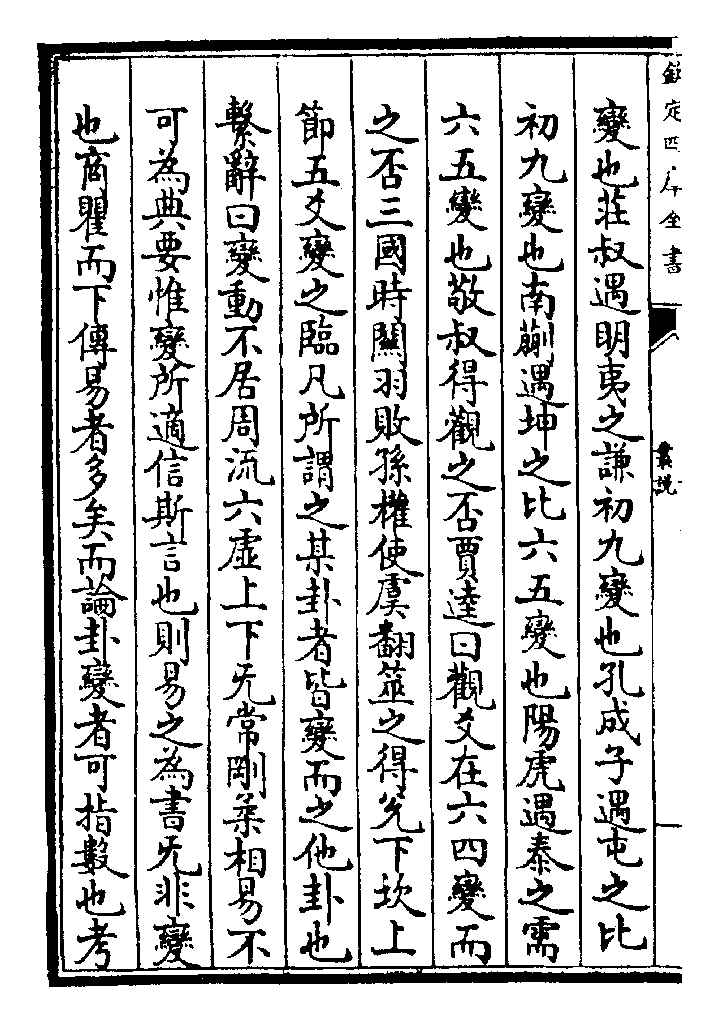 欽定四庫全書
叢說
變也莊叔遇明夷之謙初九變也孔成子遇屯之比
初九變也南蒯遇坤之比六五變也陽虎遇泰之需
六五變也敬叔得觀之否賈逵曰觀爻在六四變而
之否三國時關羽敗孫權使虞翻筮之得兊下坎上
節五爻變之臨凡所謂之某卦者皆變而之他卦也
繫辭曰變動不居周流六虛上下旡常剛柔相易不
可為典要惟變所適信斯言也則易之為書旡非變
也商瞿而下傳易者多矣而論卦變者可指數也考